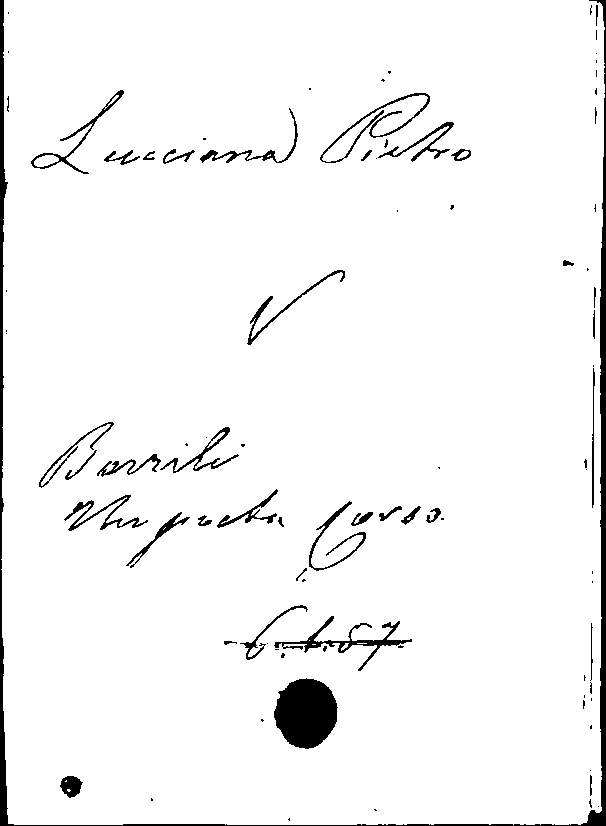 Lucciana) Pietro
V
Barrili
Un poeta Corso.